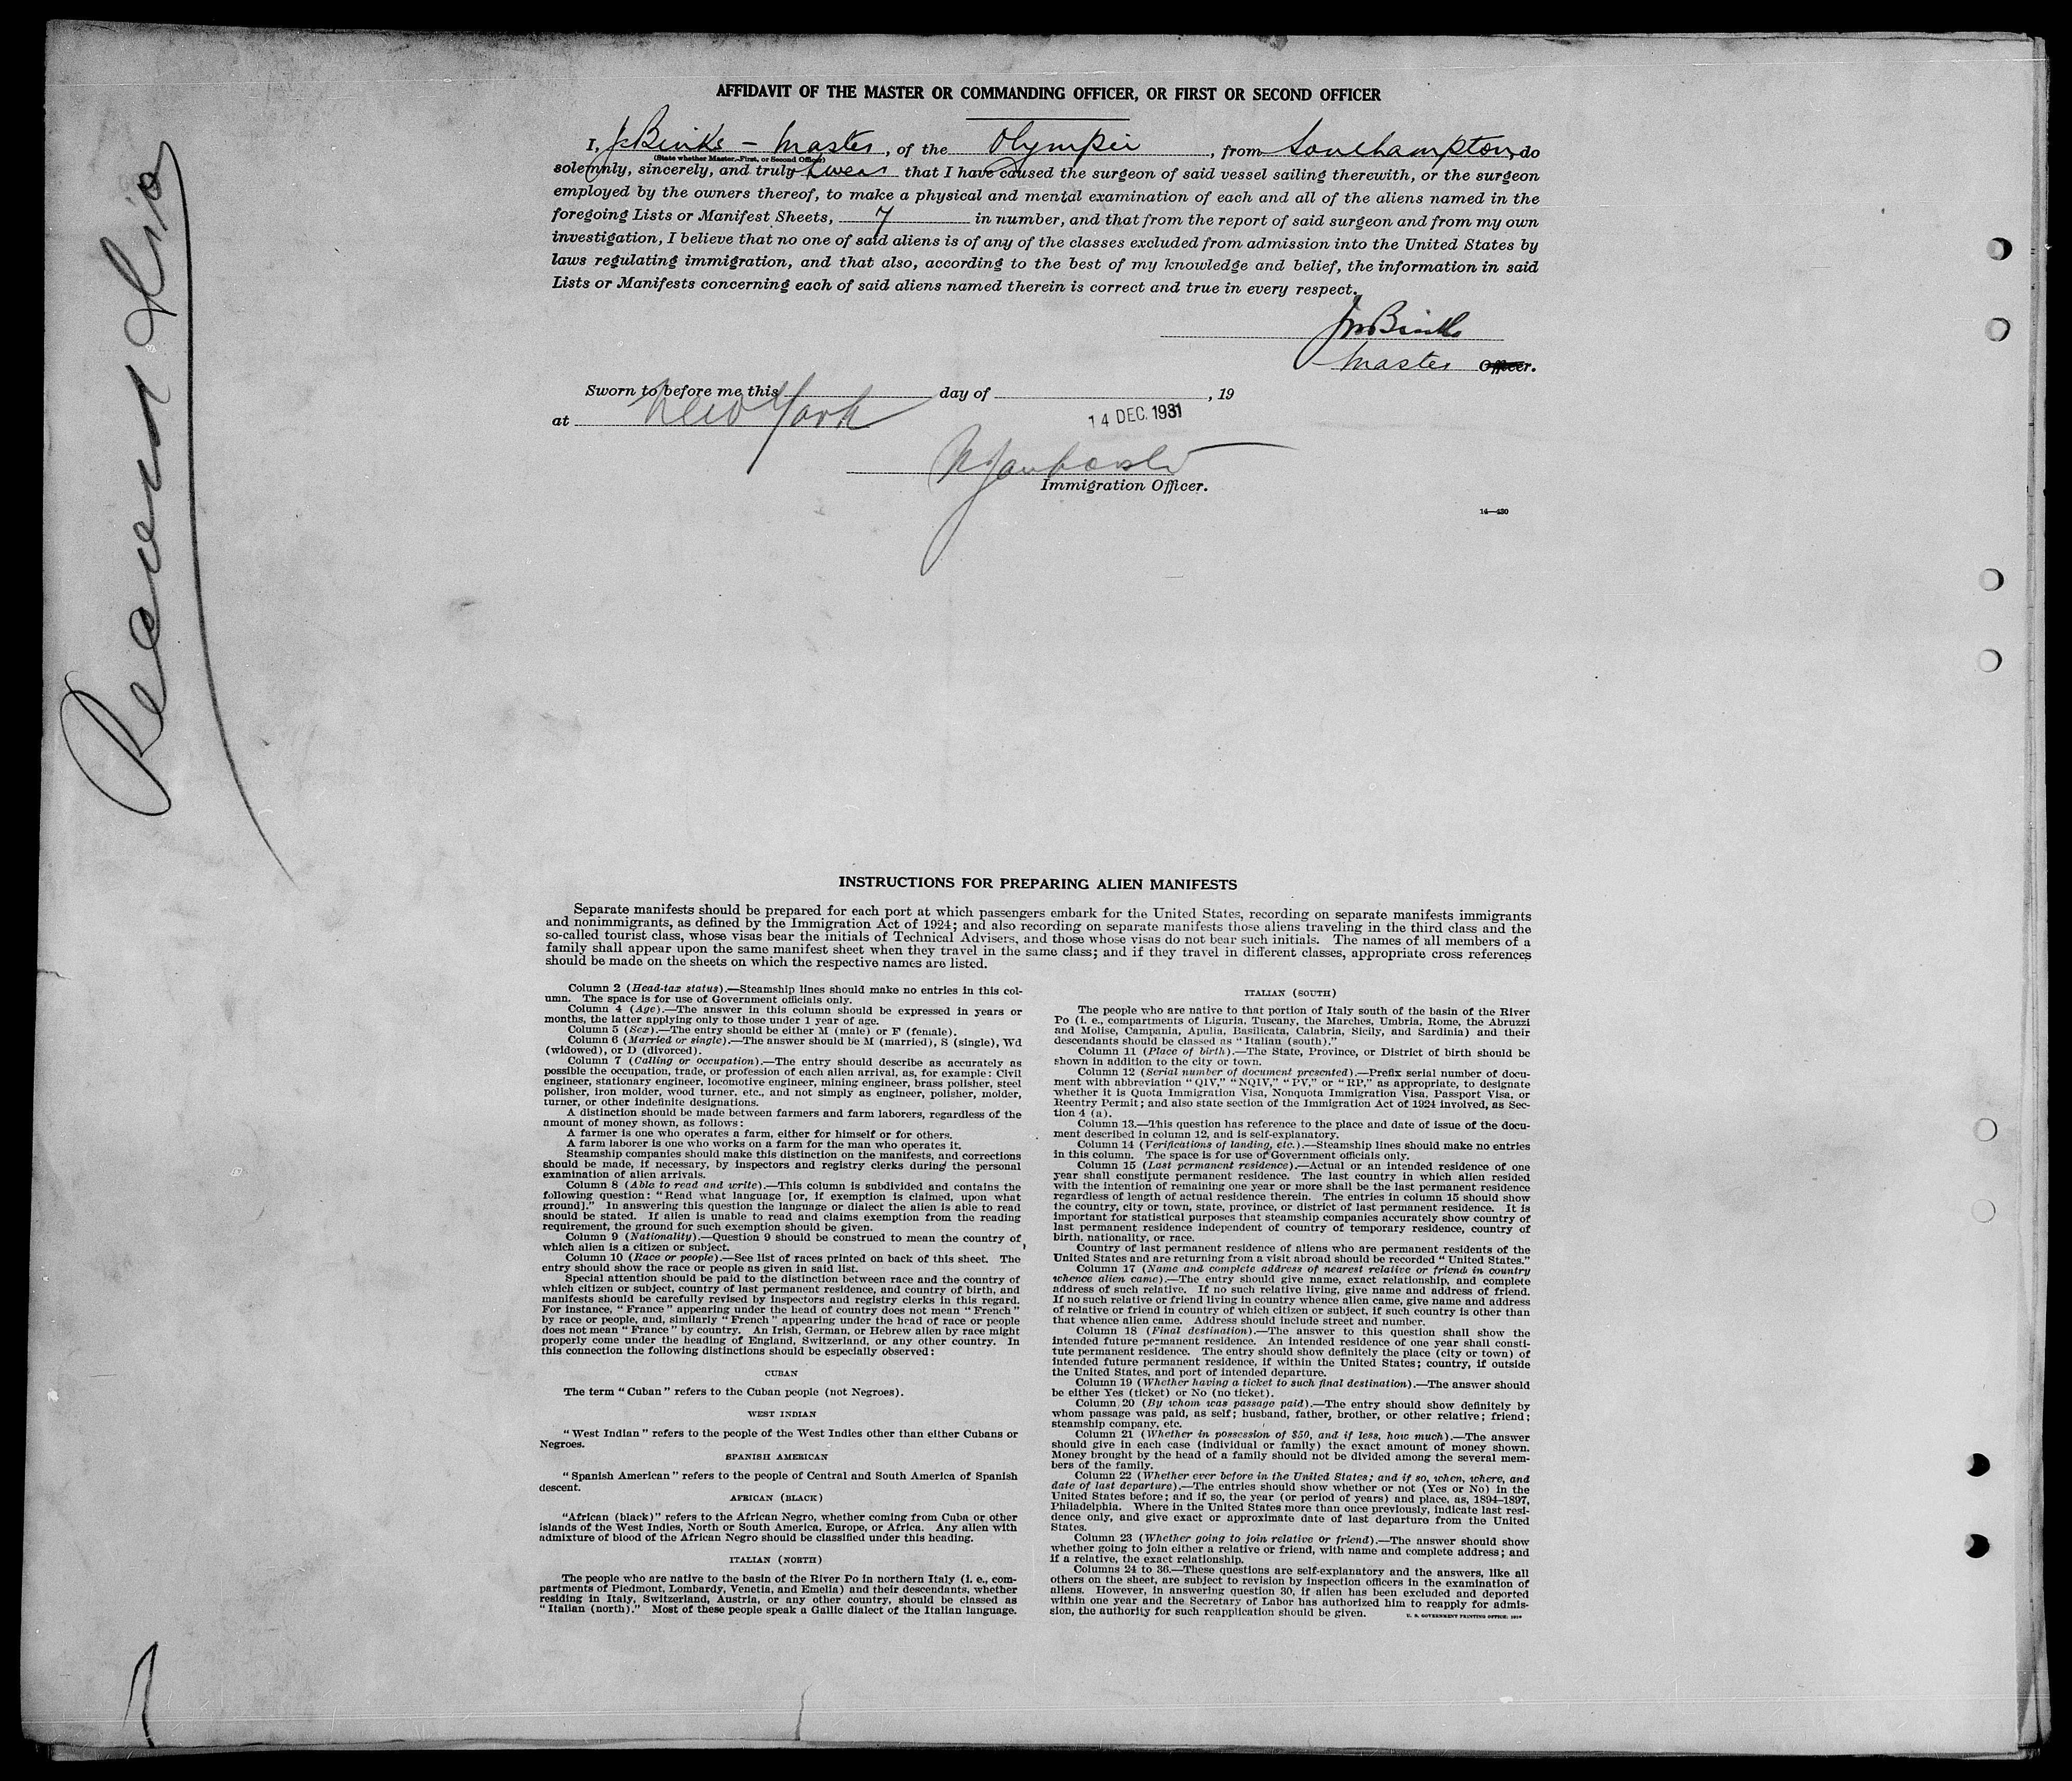 AFFIDAVIT OF THE MASTER OR COMMANDING OFFICER, OR FIRST OR SECOND OFFICER
I, J Binks - Master, of the Olympic, from Southampton, do
(State whether Master, First, or Second Officer)
solemnly, sincerely, and truly swear that I have caused the surgeon of said vessel sailing therewith, or the surgeon
employed by the owners thereof, to make a physical and mental examination of each and all of the aliens named in the
foregoing Lists or Manifest Sheets, 7 in number, and that from the report of said surgeon and from my own
investigation, I believe that no one of said aliens is of any of the classes excluded from admission into the United States by
laws regulating immigration, and that also, according to the best of my knowledge and belief, the information in said
Lists or Manifests concerning each of said aliens named therein is correct and true in every respect.
Binks
Master Officer.
Sworn to before me this day of , 19
at New York
14 DEC. 1931
Immigration Officer.
14—430
INSTRUCTIONS FOR PREPARING ALIEN MANIFESTS
Separate manifests should be prepared for each port at which passengers embark for the United States, recording on separate manifests immigrants
and nonimmigrants, as defined by the Immigration Act of 1924; and also recording on separate manifests those aliens traveling in the third class and the
so-called tourist class, whose visas bear the initials of Technical Advisers, and those whose visas do not bear such initials. The names of all members of a
family shall appear upon the same manifest sheet when they travel in the same class; and if they travel in different classes, appropriate cross references
should be made on the sheets on which the respective names are listed.
Column 2 (Head-tax status).—Steamship lines should make no entries in this col-
umn. The space is for use of Government officials only.
Column 4 (Age).—The answer in this column should be expressed in years or
months, the latter applying only to those under 1 year of age.
Column 5 (Sex).—The entry should be either M (male) or F (female).
Column 6 (Married or single).—The answer should be M (married), S (single), Wd
(widowed), or D (divorced).
Column 7 (Calling or occupation).—The entry should describe as accurately as
possible the occupation, trade, or profession of each alien arrival, as, for example: Civil
engineer, stationary engineer, locomotive engineer, mining engineer, brass polisher, steel
polisher, iron molder, wood turner, etc., and not simply as engineer, polisher, molder,
turner, or other indefinite designations.
A distinction should be made between farmers and farm laborers, regardless of the
amount of money shown, as follows:
A farmer is one who operates a farm, either for himself or for others.
A farm laborer is one who works on a farm for the man who operates it.
Steamship companies should make this distinction on the manifests, and corrections
should be made, if necessary, by inspectors and registry clerks during the personal
examination of alien arrivals.
Column 8 (Able to read and write).—This column is subdivided and contains the
following question: "Read what language [or, if exemption is claimed, upon what
ground]." In answering this question the language or dialect the alien is able to read
should be stated. If alien is unable to read and claims exemption from the reading
requirement, the ground for such exemption should be given.
Column 9 (Nationality).—Question 9 should be construed to mean the country of
which alien is a citizen or subject.
Column 10 (Race or people).—See list of races printed on back of this sheet. The
entry should show the race or people as given in said list.
Special attention should be paid to the distinction between race and the country of
which citizen or subject, country of last permanent residence, and country of birth, and
manifests should be carefully revised by inspectors and registry clerks in this regard.
For instance, "France" appearing under the head of country does not mean "French"
by race or people, and, similarly "French" appearing under the head of race or people
does not mean "France" by country. An Irish, German, or Hebrew alien by race might
properly come under the heading of England, Switzerland, or any other country. In
this connection the following distinctions should be especially observed:
CUBAN
The term "Cuban" refers to the Cuban people (not Negroes).
WEST INDIAN
"West Indian" refers to the people of the West Indies other than either Cubans or
Negroes.
SPANISH AMERICAN
"Spanish American" refers to the people of Central and South America of Spanish
descent.
AFRICAN (BLACK)
"African (black)" refers to the African Negro, whether coming from Cuba or other
islands of the West Indies, North or South America, Europe, or Africa. Any alien with
admixture of blood of the African Negro should be classified under this heading.
ITALIAN (NORTH)
The people who are native to the basin of the River Po in northern Italy (i. e., com-
partments of Piedmont, Lombardy, Venetia, and Emelia) and their descendants, whether
residing in Italy, Switzerland, Austria, or any other country, should be classed as
"Italian (north)." Most of these people speak a Gallic dialect of the Italian language.
ITALIAN (SOUTH)
The people who are native to that portion of Italy south of the basin of the River
Po (i. e., compartments of Liguria, Tuscany, the Marches, Umbria, Rome, the Abruzzi
and Molise, Campania, Apulia, Basilicata, Calabria, Sicily, and Sardinia) and their
descendants should be classed as "Italian (south)."
Column 11 (Place of birth).—The State, Province, or District of birth should be
shown in addition to the city or town.
Column 12 (Serial number of document presented).—Prefix serial number of docu-
ment with abbreviation "QIV," "NQIV," "PV," or "RP," as appropriate, to designate
whether it is Quota Immigration Visa, Nonquota Immigration Visa, Passport Visa, or
Reentry Permit; and also state section of the Immigration Act of 1924 involved, as Sec-
tion 4 (a).
Column 13.—This question has reference to the place and date of issue of the docu-
ment described in column 12, and is self-explanatory.
Column 14 (Verifications of landing, etc.).—Steamship lines should make no entries
in this column. The space is for use of Government officials only.
Column 15 (Last permanent residence).—Actual or an intended residence of one
year shall constitute permanent residence. The last country in which alien resided
with the intention of remaining one year or more shall be the last permanent residence
regardless of length of actual residence therein. The entries in column 15 should show
the country, city or town, state, province, or district of last permanent residence. It is
important for statistical purposes that steamship companies accurately show country of
last permanent residence independent of country of temporary residence, country of
birth, nationality, or race.
Country of last permanent residence of aliens who are permanent residents of the
United States and are returning from a visit abroad should be recorded "United States."
Column 17 (Name and complete address of nearest relative or friend in country
whence alien came).—The entry should give name, exact relationship, and complete
address of such relative. If no such relative living, give name and address of friend.
If no such relative or friend living in country whence alien came, give name and address
of relative or friend in country of which citizen or subject, if such country is other than
that whence alien came. Address should include street and number.
Column 18 (Final destination).—The answer to this question shall show the
intended future permanent residence. An intended residence of one year shall consti-
tute permanent residence. The entry should show definitely the place (city or town) of
intended future permanent residence, if within the United States; country, if outside
the United States, and port of intended departure.
Column 19 (Whether having a ticket to such final destination).—The answer should
be either Yes (ticket) or No (no ticket).
Column 20 (By whom was passage paid).—The entry should show definitely by
whom passage was paid, as self; husband, father, brother, or other relative; friend;
steamship company, etc.
Column 21 (Whether in possession of $50, and if less, how much).—The answer
should give in each case (individual or family) the exact amount of money shown.
Money brought by the head of a family should not be divided among the several mem-
bers of the family.
Column 22 (Whether ever before in the United States; and if so, when, where, and
date of last departure).—The entries should show whether or not (Yes or No) in the
United States before; and if so, the year (or period of years) and place, as, 1894-1897,
Philadelphia. Where in the United States more than once previously, indicate last resi-
dence only, and give exact or approximate date of last departure from the United
States.
Column 23 (Whether going to join relative or friend).—The answer should show
whether going to join either a relative or friend, with name and complete address; and
if a relative, the exact relationship.
Columns 24 to 36.—These questions are self-explanatory and the answers, like all
others on the sheet, are subject to revision by inspection officers in the examination of
aliens. However, in answering question 30, if alien has been excluded and deported
within one year and the Secretary of Labor has authorized him to reapply for admis-
sion, the authority for such reapplication should be given.
U. S. GOVERNMENT PRINTING OFFICE: